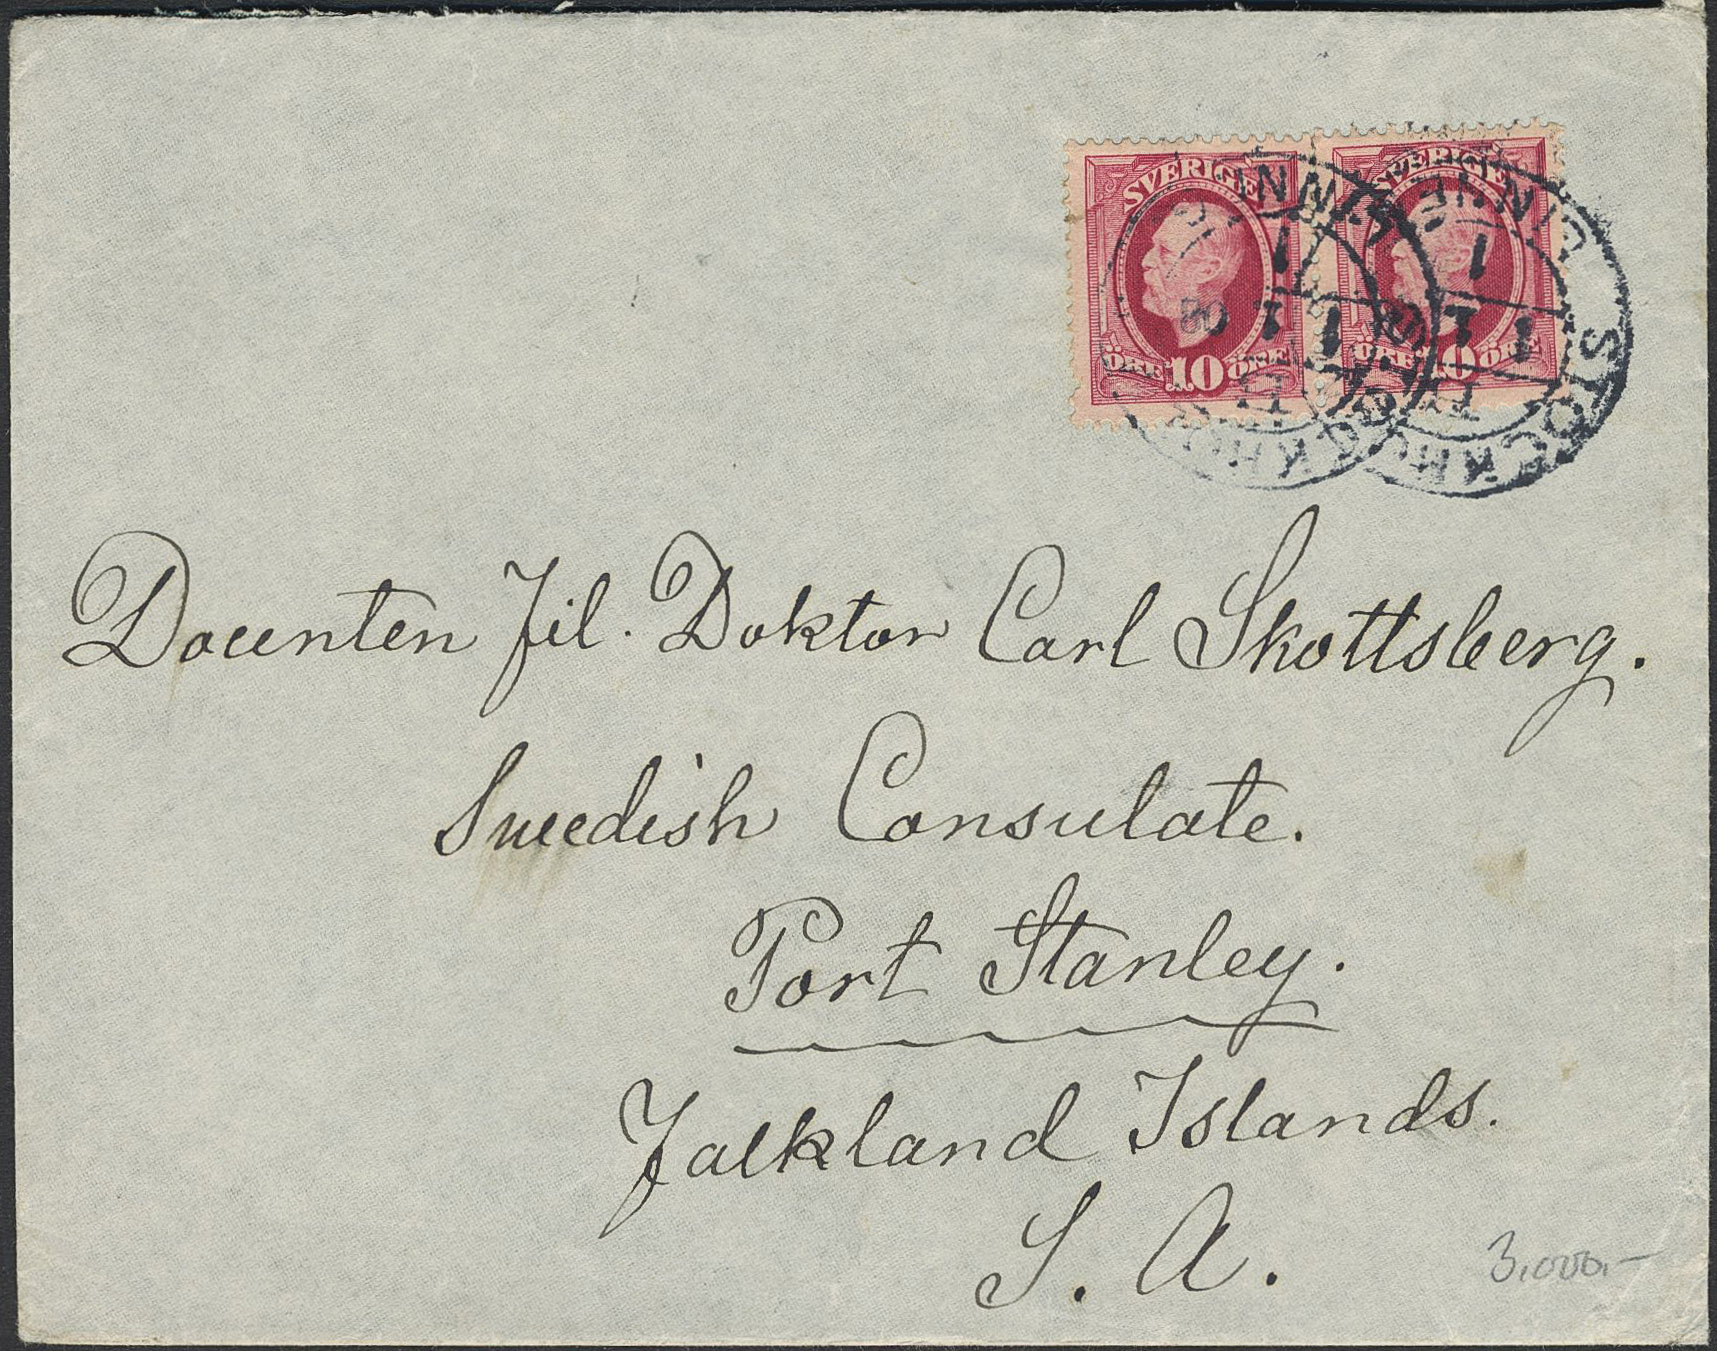 SVERIGE SVERIGE
ÖRE 10 ÖRE ÖRE 10 ÖRE
STOCKHOLM
Docenten Fil. Doktor Carl Skottsberg.
Swedish Consulate.
Port Stanley.
Falkland Islands.
S. A.
3,000.-